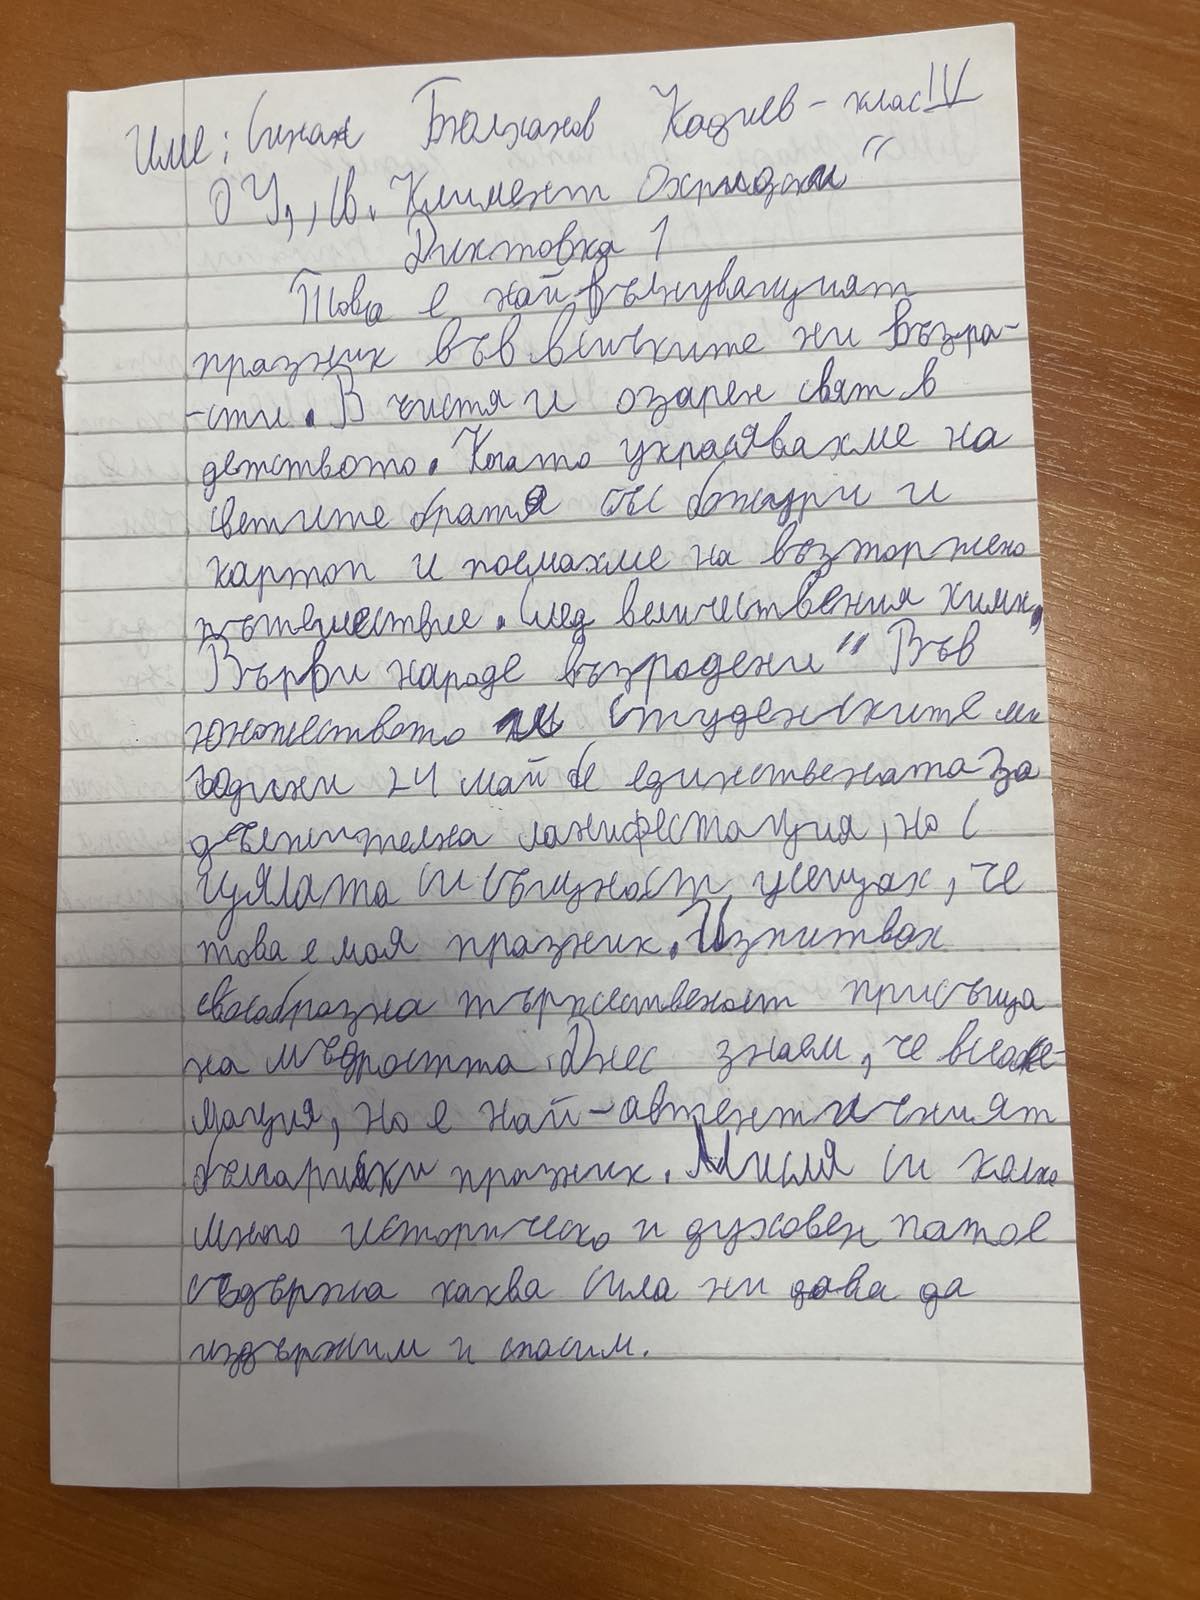 Име: Синан Кадиев - клас IV
ОУ ,,Св. Климент Охридски"
Диктовка 1
Това е най вълнуващият
празник във всичките ни възра-
-сти. В чистя и озарен свят в
детството. Когато украсявахме на
светите братя със божури и
картоп и поемахме на възторжено
пътешествие. След величествения химн,
Върви народе възродени" Във
юношеството и студенските ми
години 24 май бе единствената за
дължителна манифестация, но с
цялата си същност усещах, че
това е моя празник. Изпитвах
своеобразна тържественост присъща
на мъдростта. Днес знаем, че
мация, но е най-автентичният
български празник. Мисля си колко
много историческо и духовен патос
съдържа каква сила ни дава да
издържим и спасим.